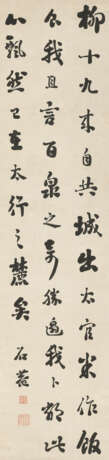 柳十九來自共城出太官米作飯
食我且言百泉之奇勝過我卜鄰此
心飄然已在太行之麓矣
石菴